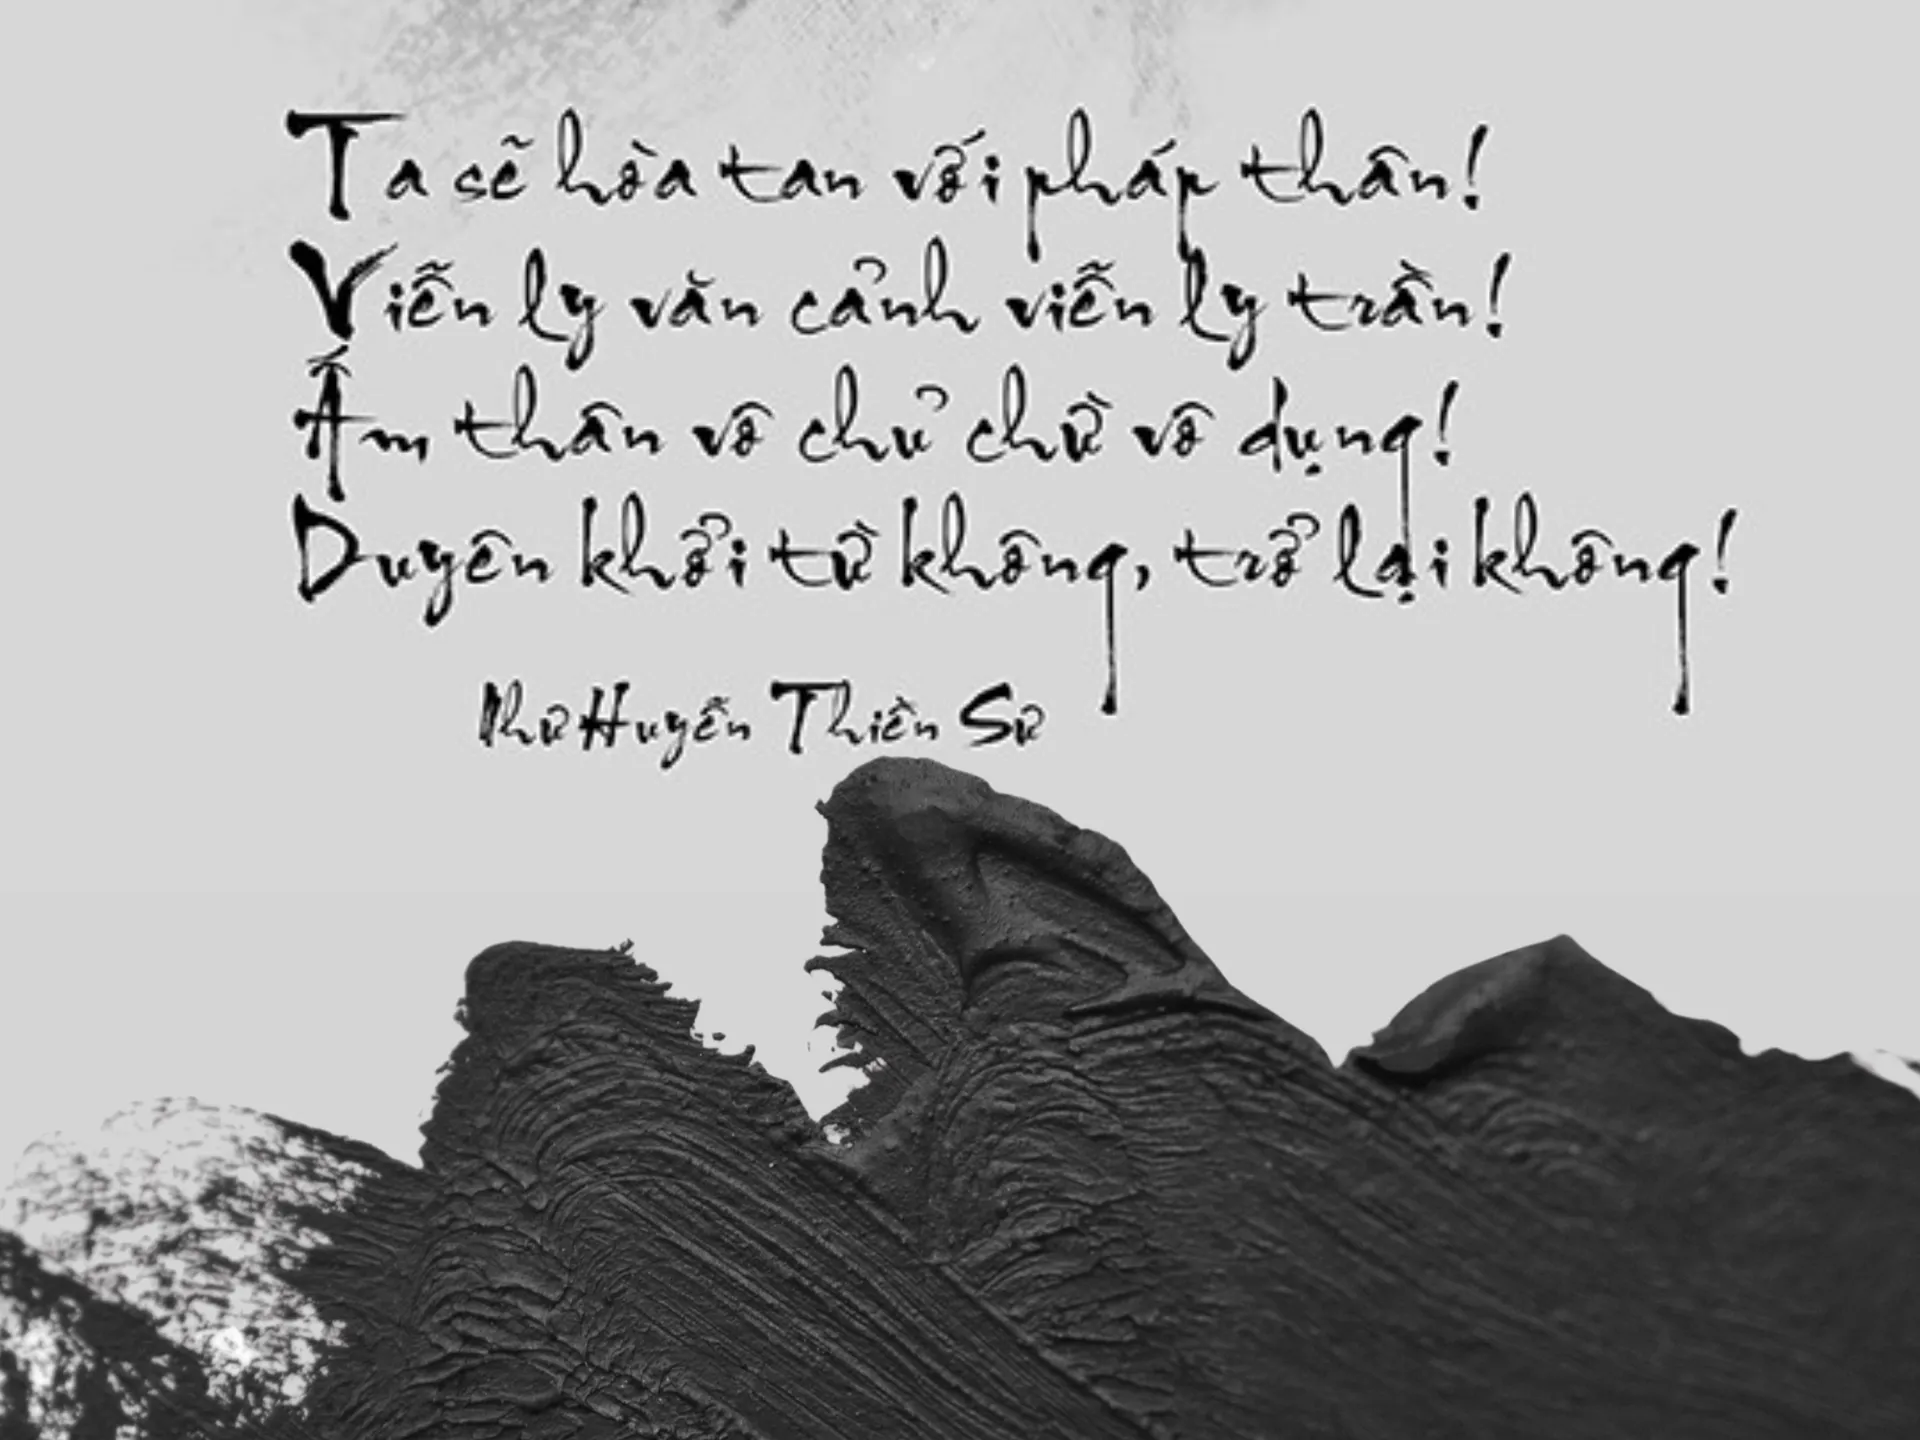 Ta sẽ hòa tan với pháp thân!
Viễn ly văn cảnh viễn ly trần!
Ấm thân vô chủ chừ vô dụng!
Duyên khởi từ không, trở lại không!
Như Huyễn Thiền Sư